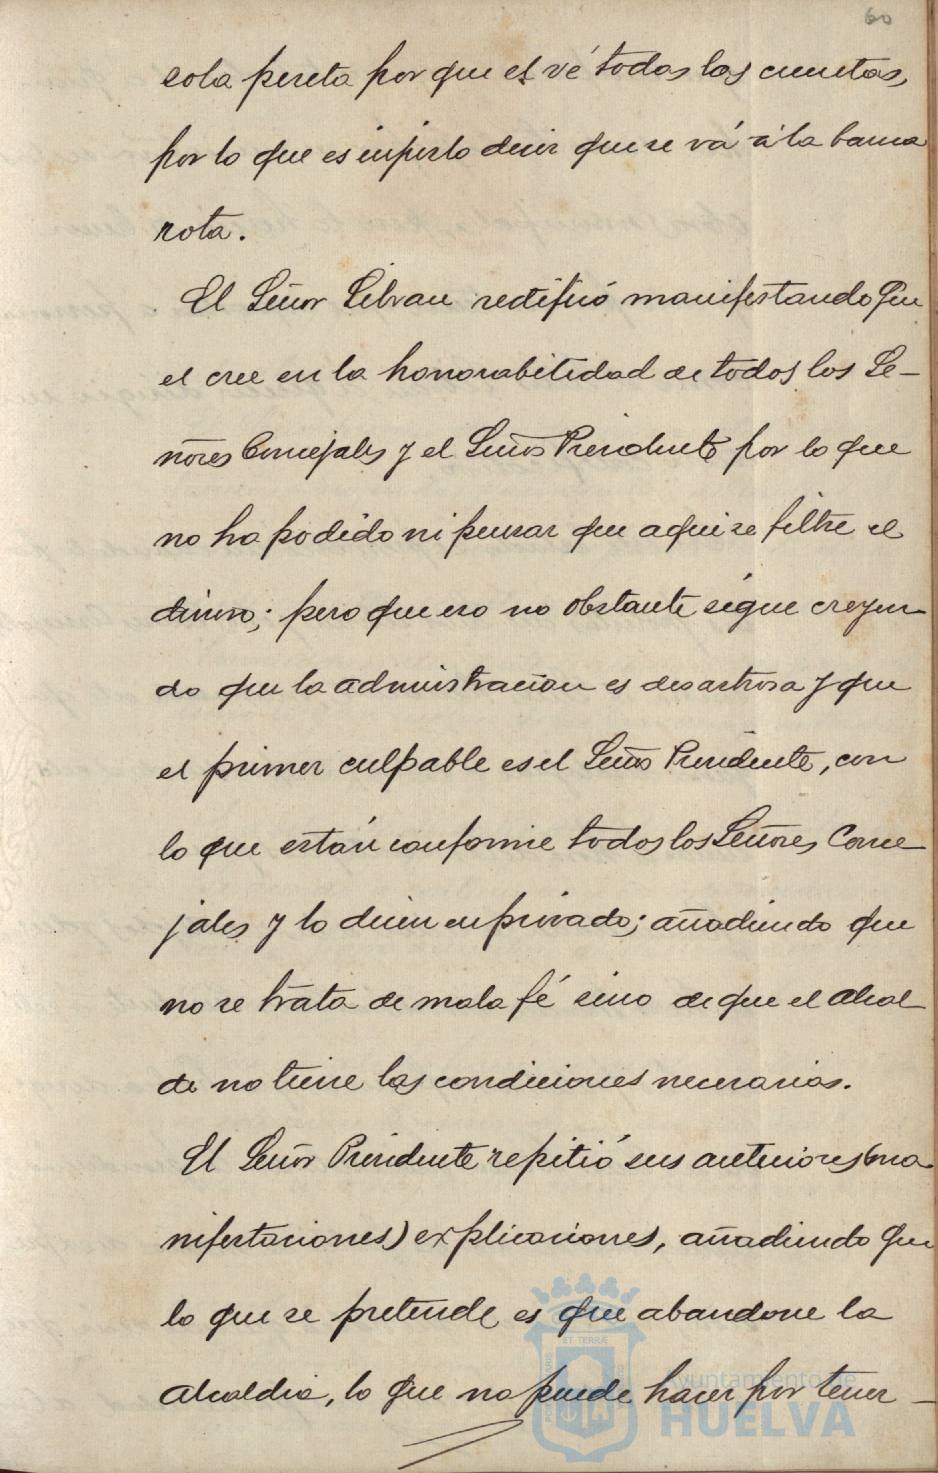 60
sola peseta por que el vé todas las cuentas,
por lo que es injusto decir que se vá á la banca
rota.
El Señor Librau rectificó manifestando que
el cree en la honorabilidad de todos los Se-
ñores Concejales y el Señor Presidente por lo que
no ha podido ni pensar que aqui se filtre el
dinero; pero que eso no obstante sigue creyen-
do que la administracion es desastrosa y que
el primer culpable es el Señor Presidente, con
lo que están conforme todos los Señores Conce-
jales y lo dicen en privado; añadiendo que
no se trata de mala fé sino de que el Alcal
de no tiene las condiciones necesarias.
El Señor Presidente repitió sus anteriores (ma
nifestaciones) explicaciones, añadiendo que
lo que se pretende es que abandone la
Alcaldia, lo que no puede hacer por tener-
ET TERRÆ
Ayuntamiento de
HUELVA